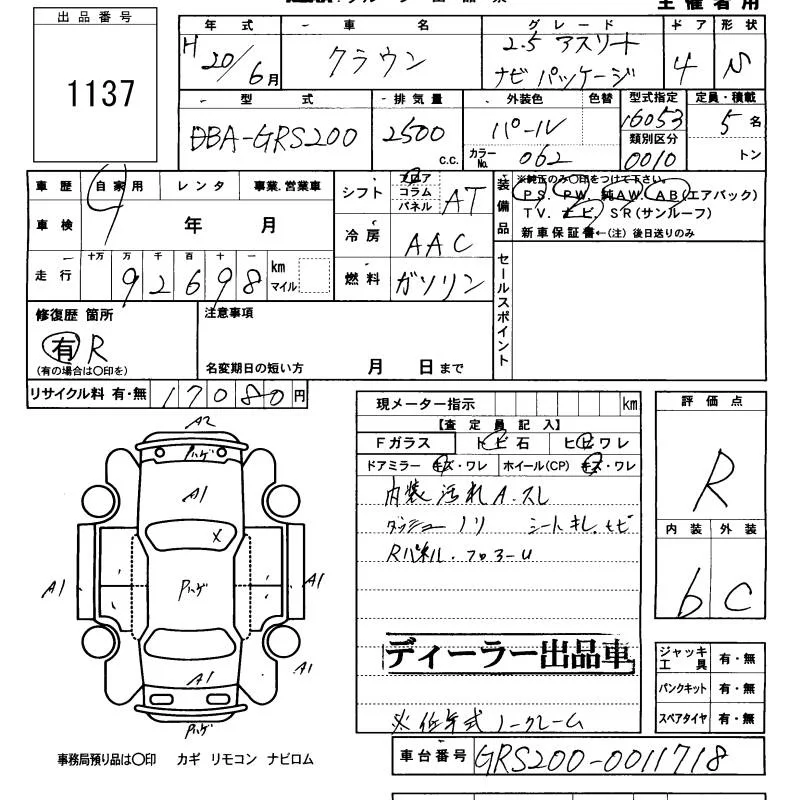 主催者用
出品番号
1137
年式 車名 グレード ドア 形状
H20/6月 クラウン 2.5 アスリート ナビパッケージ 4 N
型式 排気量 外装色 色替 型式指定 定員・積載
DBA-GRS200 2500 c.c. パール 16053 5名
カラーNo. 062 類別区分 0010 トン
車歴 自家用 レンタ 事業.営業車
車検 9年 月
走行 十万 万 千 百 十 一 km マイル
92698
シフト フロア コラム パネル AT
冷房 AAC
燃料 ガソリン
装備品 ※純正のみ〇印をつけて下さい。
PS. PW. 純AW. AB(エアバック)
TV. ナビ. SR(サンルーフ)
新車保証書←(注) 後日送りのみ
セールスポイント
修復歴 箇所
有 R
(有の場合は〇印を)
注意事項
名変期日の短い方 月 日まで
リサイクル料 有・無 17080円
現メーター指示 km
【査定員記入】
Fガラス トビ石 ヒビワレ
ドアミラー キズ・ワレ ホイール(CP) キズ・ワレ
内装 汚れ A.スレ
ダッシュー ノリ シート キレ.
Rパネル.フロヨーU
ディーラー出品車
※低年式 ノークレーム
評価点
R
内装 外装
b C
ジャッキ工具 有・無
パンクキット 有・無
スペアタイヤ 有・無
A2
Pハゲ
A1
X
A1 Pハゲ A1
A1 A1
Pハゲ
事務局預り品は〇印 カギ リモコン ナビロム
車台番号 GRS200-0011718